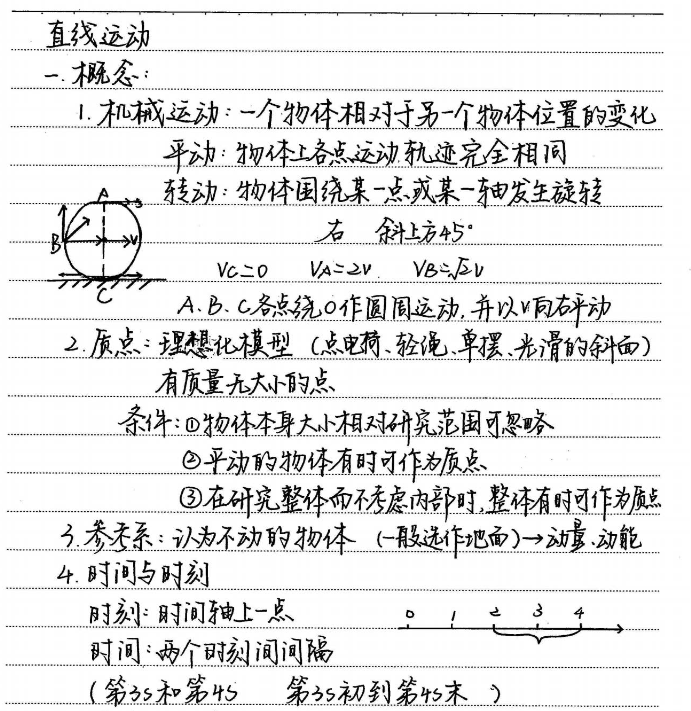 直线运动
一.概念:
1.机械运动:一个物体相对于另一个物体位置的变化
平动:物体上各点运动轨迹完全相同
转动:物体围绕某一点或某一轴发生旋转
A
B
V
C
右 斜上方45°
VC=0 VA=2V VB=√2V
A.B.C各点绕O作圆周运动,并以V向右平动
2.质点:理想化模型(点电荷、轻绳、单摆、光滑的斜面)
有质量无大小的点
条件:①物体本身大小相对研究范围可忽略
②平动的物体有时可作为质点
③在研究整体而不考虑内部时,整体有时可作为质点
3.参考系:认为不动的物体 (一般选作地面)→动量、动能
4.时间与时刻
时刻:时间轴上一点
0 1 2 3 4
时间:两个时刻间间隔
(第3s和第4s 第3s初到第4s末 )